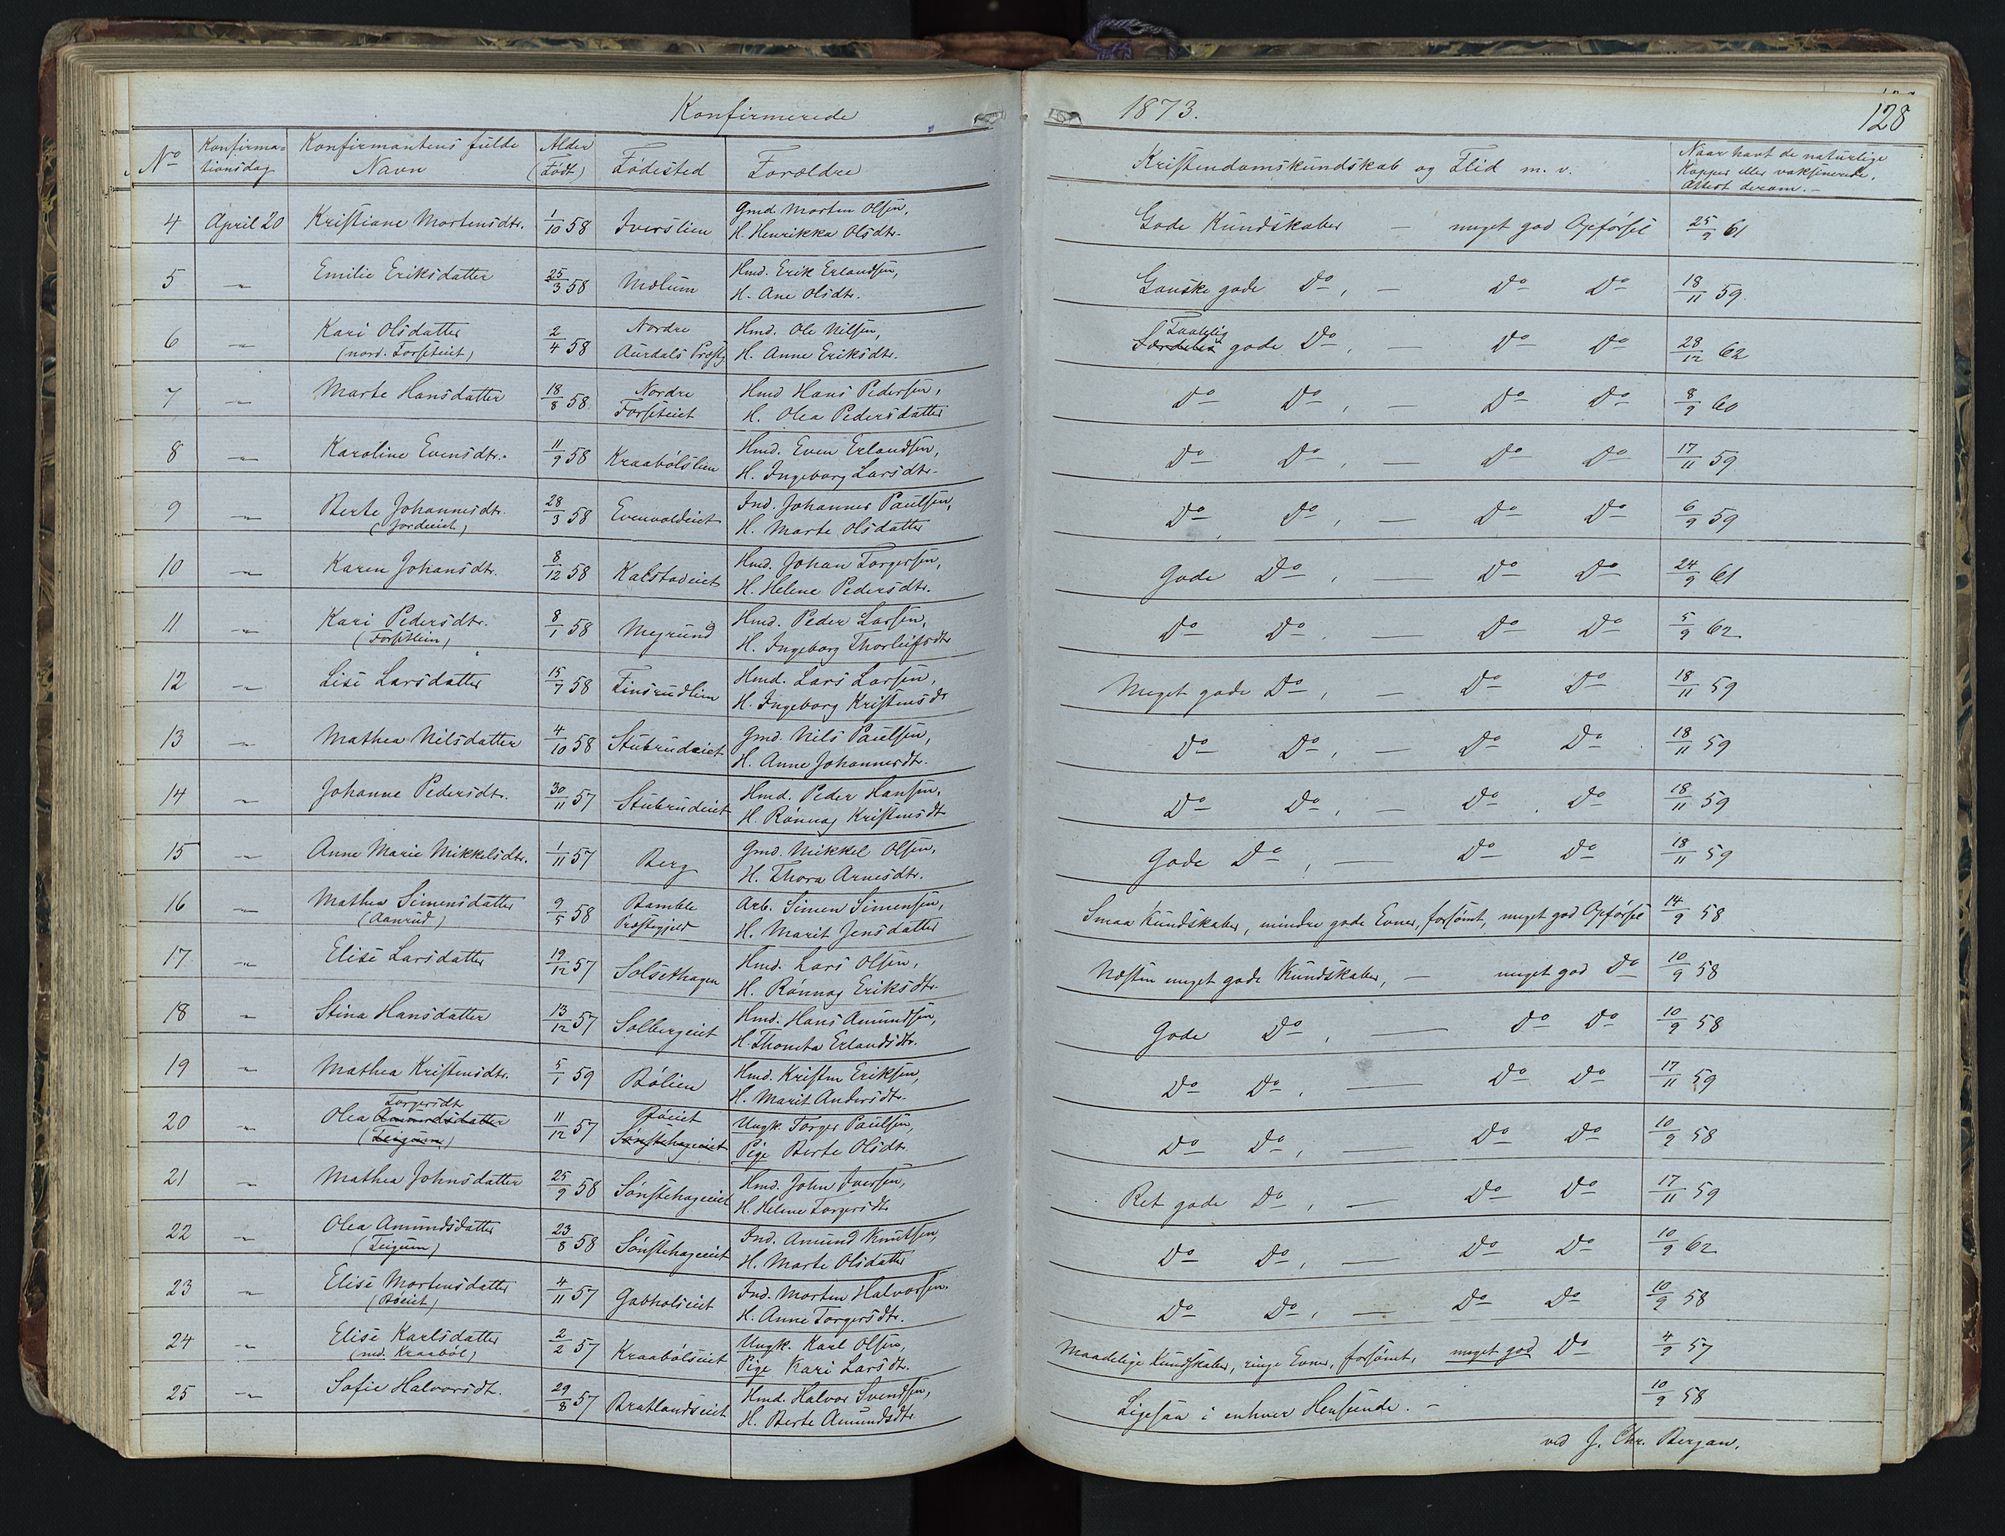 Konfirmerede 1873. 128
No Konfirma- Konfirmantens fulde Alder
tionsdag Navn (Født) Fødested Forældre Kristendomskundskab og Flid m. v. Naar havt de naturlige
Kopper eller vaksinerede,
Attest derom. -
4 April 20 Kristiane Mortensdtr. 1/10 58 Iverslien Gmd. Morten Olsen,
H. Henrikka Olsdtr. Gode Kundskaber — meget god Opførsel 25/9 61
5 -"- Emilie Eriksdatter 25/3 58 Mælum Hmd. Erik Erlandsen,
H. Ane Olsdtr. Ganske gode Do, — Do Do 18/11 59.
6 -"- Kari Olsdatter 2/4 58 Nordre Hmd. Ole Nilsen,
(nord. Forseteiet) Aurdals Præstg H. Anne Eriksdtr. Taalelig gode Do, — Do Do 28/12 62
7 -"- Marte Hansdatter 18/8 58 Nordre Hmd Hans Pedersen,
Forseteiet H. Olea Pedersdatter Do Do, — Do Do 8/9 60
8 -"- Karoline Evensdtr. 11/9 58 Kraabølslien Hmd. Even Erlandsen,
H. Ingeborg Larsdtr. Do Do, — Do Do 17/11 59
9 -"- Berte Johannesdtr. 28/3 58 Evenvoldeiet Ind. Johannes Paulsen,
(Jordeiet) H. Marte Olsdatter Do Do, — Do Do 6/9 59
10 -"- Karen Johansdtr. 8/12 58 Kalstadeiet Hmd. Johan Torgersen,
H. Helene Pedersdtr. Gode Do, — Do Do 24/9 61
11 -"- Kari Pedersdtr. 8/1 58 Megrund Hmd. Peder Larsen,
(Forsetlien) H. Ingeborg Thorleifsdtr Do Do. — Do Do 5/9 62
12 -"- Lise Larsdatter 15/7 58 Finsrudlien Hmd. Lars Larsen,
H. Ingeborg Kristensdtr Meget gode Do, — Do Do 18/11 59
13 -"- Mathea Nilsdatter 4/10 58 Stubrudeiet Gmd. Nils Paulsen,
H. Anne Johannesdtr. Do Do, — Do Do 18/11 59
14 -"- Johanne Pedersdtr. 30/11 57 Stubrudeiet Hmd. Peder Hansen,
H. Rønnog Kristensdtr Do Do, — Do Do 18/11 59
15 -"- Anne Marie Mikkelsdtr. 1/11 57 Berg Gmd. Mikkel Olsen,
H. Thora Arnesdtr. Gode Do, — Do Do 18/11 59
16 -"- Mathea Simensdatter 9/5 58 Bamble Arb. Simen Simensen,
(Aanrud) Præstegjeld H. Marit Jensdatter Smaa Kundskaber, mindre gode Evner, forsømt, meget god Opførsel 14/9 58
17 -"- Elise Larsdatter 19/12 57 Solsethagen Hmd. Lars Olsen,
H. Rønnog Eriksdtr. Næsten meget gode Kundskaber, — meget god Do 10/9 58
18 -"- Stina Hansdatter 13/12 57 Solbergeiet Hmd. Hans Amundsen,
H. Thomta Erlandsdtr. Gode Do, — Do Do 10/9 58
19 -"- Mathea Kristensdtr. 5/1 59 Bølien Hmd. Kristen Eriksen,
H. Marit Andersdtr. Do Do, — Do Do 17/11 59
Torgersdtr
20 -"- Olea Amundsdatter 11/12 57 Bøeiet Ungk. Torger Paulsen,
(Teigum) Sønstehageeiet Pige Berte Olsdtr. Do Do, — Do Do 10/9 58
21 -"- Mathea Johnsdatter 25/9 58 Sønstehageeiet Hmd. John Iversen,
H. Helene Torgersdtr Ret gode Do, — Do Do 17/11 59
22 -"- Olea Amundsdatter 23/8 58 Sønstehageeiet Ind. Amund Knutsen,
(Teigum) H. Marte Olsdatter Do Do, — Do Do 10/9 62
23 -"- Elise Mortensdatter 4/11 57 Gobholseiet Ind. Morten Halvorsen.
(Bøeiet) H. Anne Torgersdtr. Do Do, — Do Do 10/9 58
24 -"- Elise Karlsdatter 2/2 57 Kraabølseiet Ungk. Karl Olsen,
(ned. Kraabøl) Pige Kari Larsdtr. Maadelige Kundskaber, ringe Evner, forsømt, meget god Do 4/9 57
25 -"- Sofie Halvorsdtr. 29/8 57 Bratlandseiet Hmd. Halvor Svendsen,
H. Berte Amundsdtr Ligesaa i enhver Henseende. - 10/9 58
ved J. Chr. Bergan.